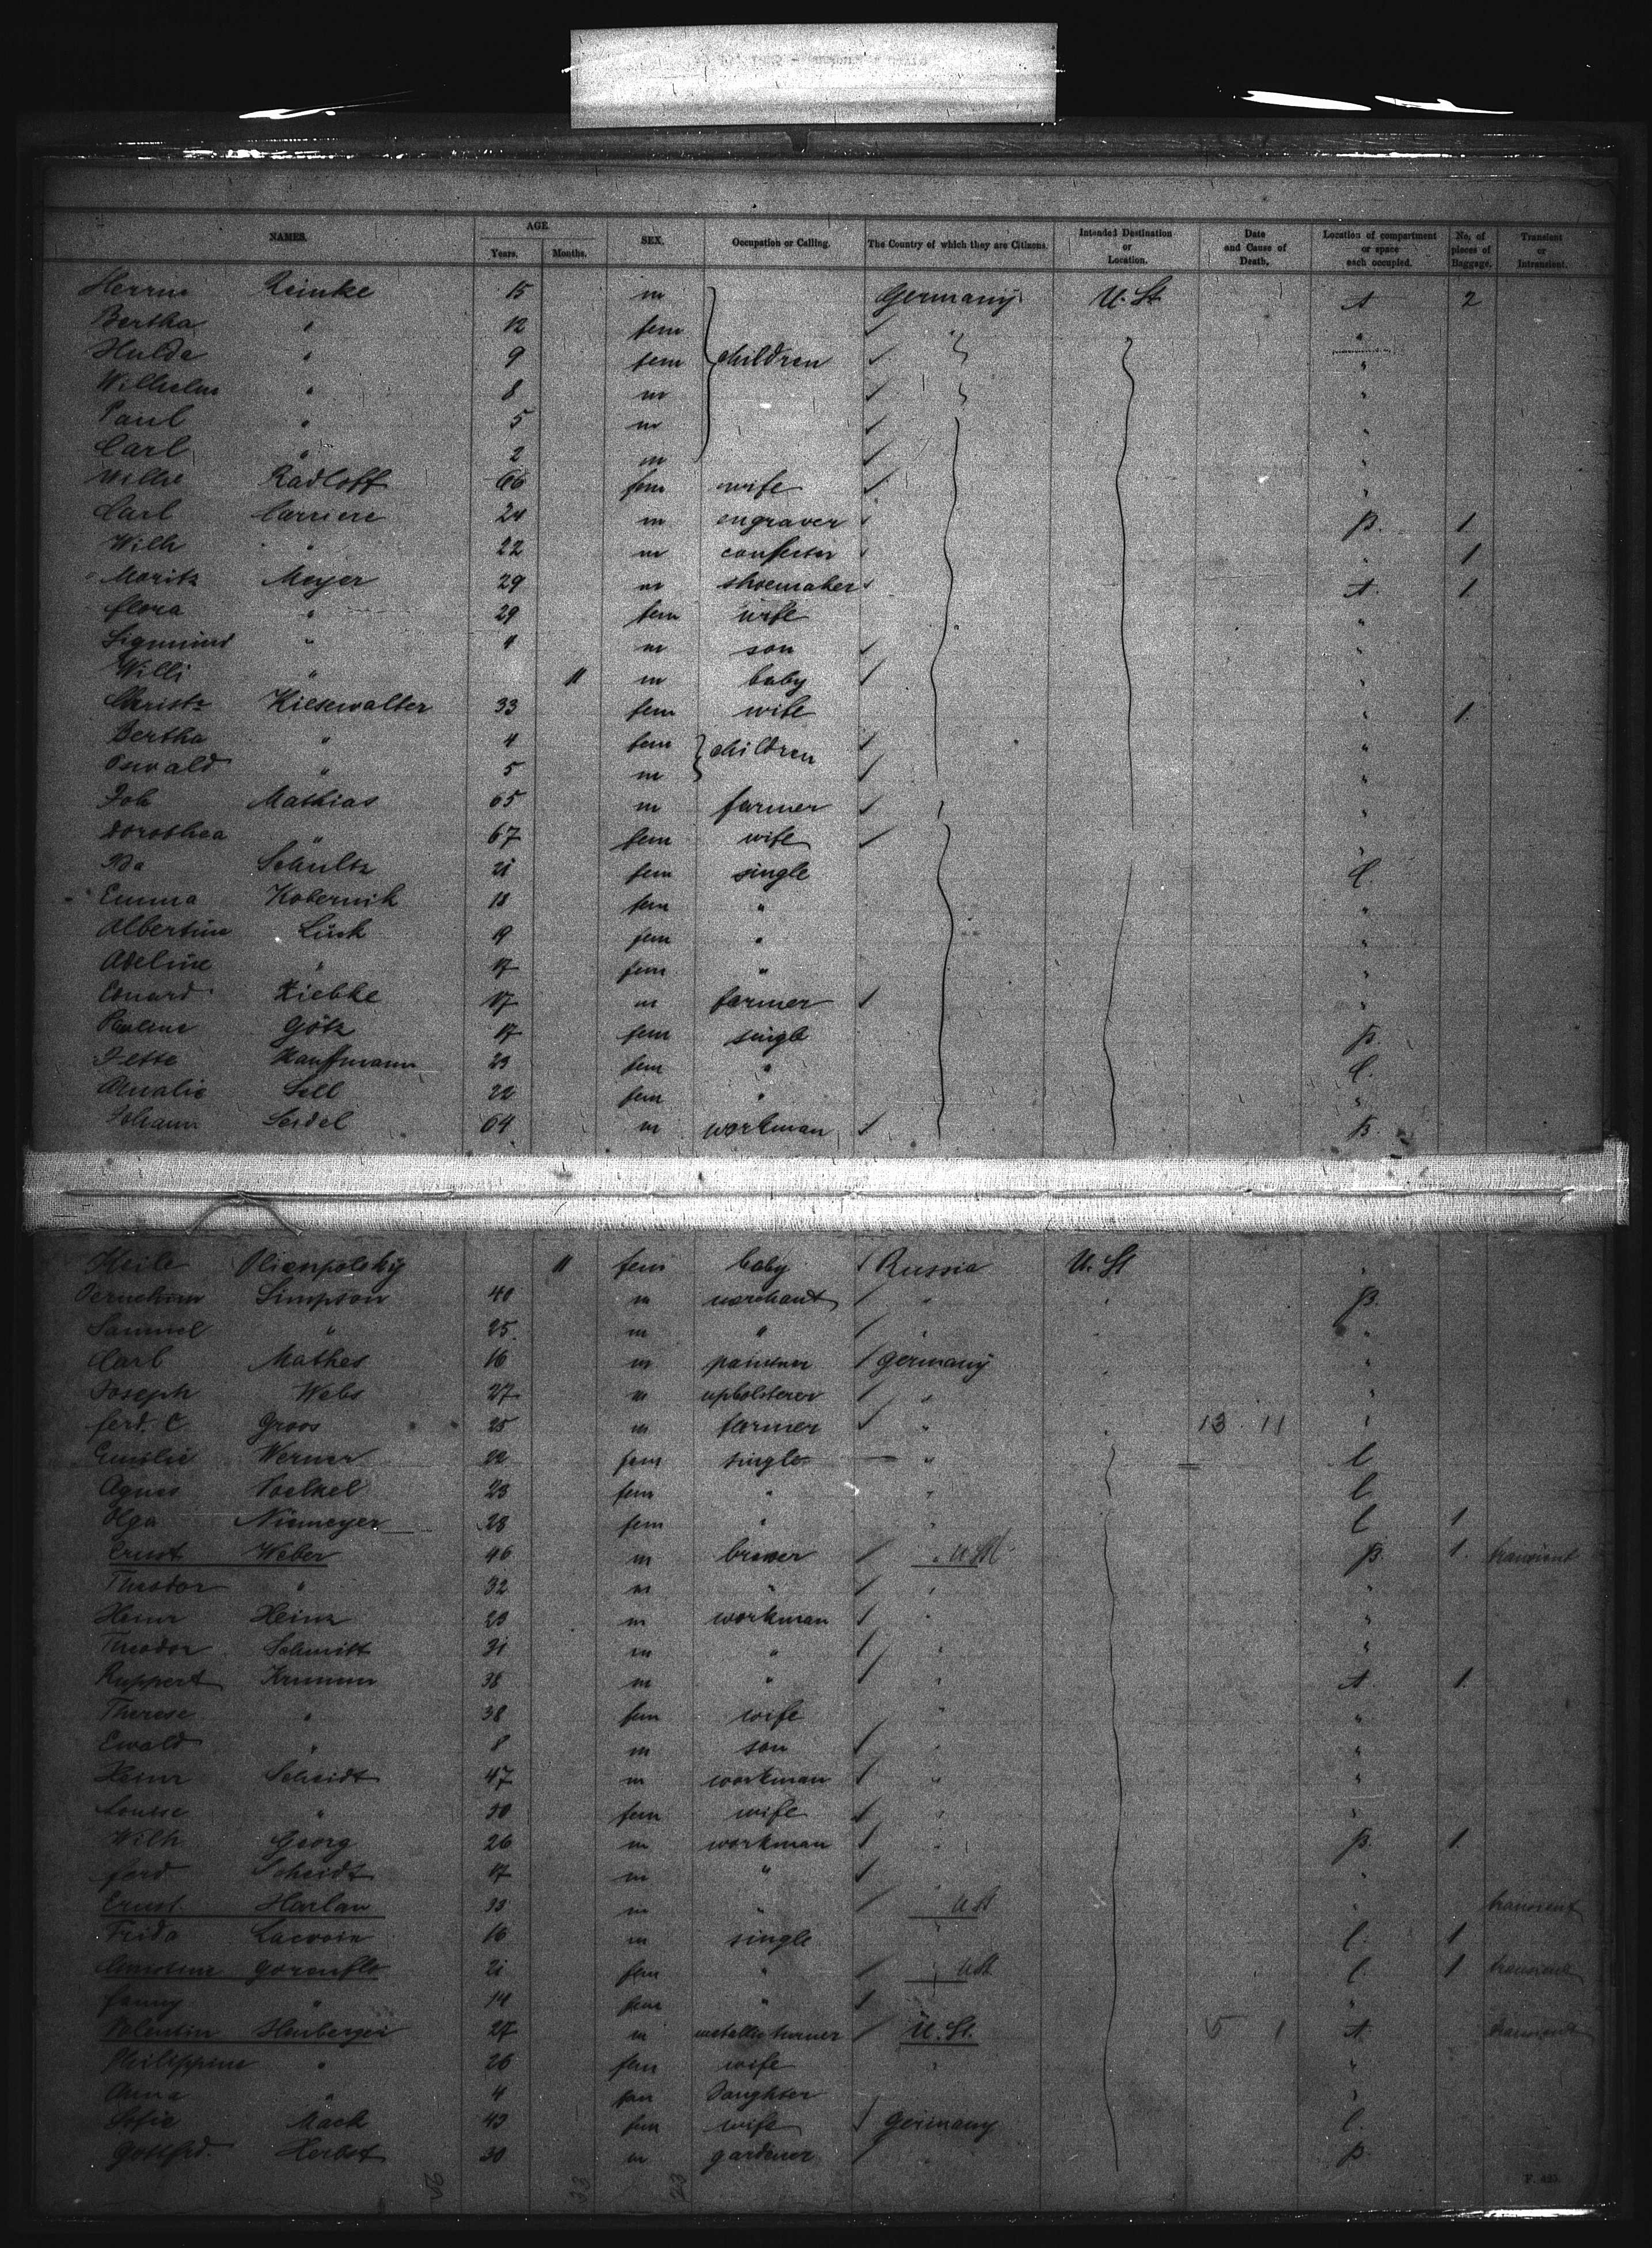 NAMES. AGE. SEX. Occupation or Calling. The Country of which they are Citizens. Intended Destination or Location. Date and Cause of Death. Location of compartment or space each occupied. No. of pieces of Baggage. Transient or Intransient.
Years. Months.
Reinke 15 m Germany U. St. A 2
Bertha " 12 fem "
Hulda " 9 fem children "
Wilhelm " 8 m "
Paul " 5 m "
Carl " 2 m "
Radloff 66 fem wife "
Carl Carriere 24 m engraver B. 1
Wilh " 22 m " 1
Moritz Meyer 29 m shoemaker A. 1
flora " 29 fem wife "
Sigmund " 4 m son "
Willi " 11 m baby "
Kiesewalter 33 fem wife " 1.
Bertha " 4 fem children "
Oswald " 5 m "
Joh Mathias 65 m farmer "
Dorothea " 67 fem wife "
Ida Schultz 21 fem single C.
Emma Kobernik 18 fem " "
Albertine Lück 19 fem " "
Adeline " 17 fem " "
Eduard 17 m farmer "
Pauline Götz 17 fem single B.
Jette Kauffmann 23 fem " C.
Amalie Sell 22 fem " "
Johann Seidel 64 m workman B.
11 fem baby Russia U. St "
Simpson 40 m merchant " " B.
Samuel " 25 m " " "
Carl Mathes 16 m Germany "
Joseph Webs 27 m upholsterer " "
ferd. C Groos 25 m farmer " 13 11
Emilie Werner 22 fem single " C
Agnes Voelkel 23 fem " " C
Olga Niemeyer 28 fem " " C 1
Ernst Weber 46 m " U St B. 1. transient
Theodor " 32 m " " "
Heinr Heinz 23 m workman " "
Theodor Schmitt 31 m " "
Ruppert Krumm 38 m " " A. 1.
Therese " 38 fem wife " "
Ewald " 8 m son " "
Heinr Scheidt 47 m workman " "
Louise " 50 fem wife " "
Wilh Georg 26 m workman " B. 1.
ferd Scheidt 17 m "
Ernst Harlan 33 m " U St " transient
Frida Lacroix 16 m single C. 1
21 fem " " U St C. 1 transient
fanny " 14 fem " "
Valentin 27 m U. St. 5 1 A. transient
Philippine " 26 fem wife " "
Anna " 4 fem Daughter "
Sofie Mack 43 fem wife Germany C.
Gottfrd. Herbst 30 m gardener " B.
23
F. 425.